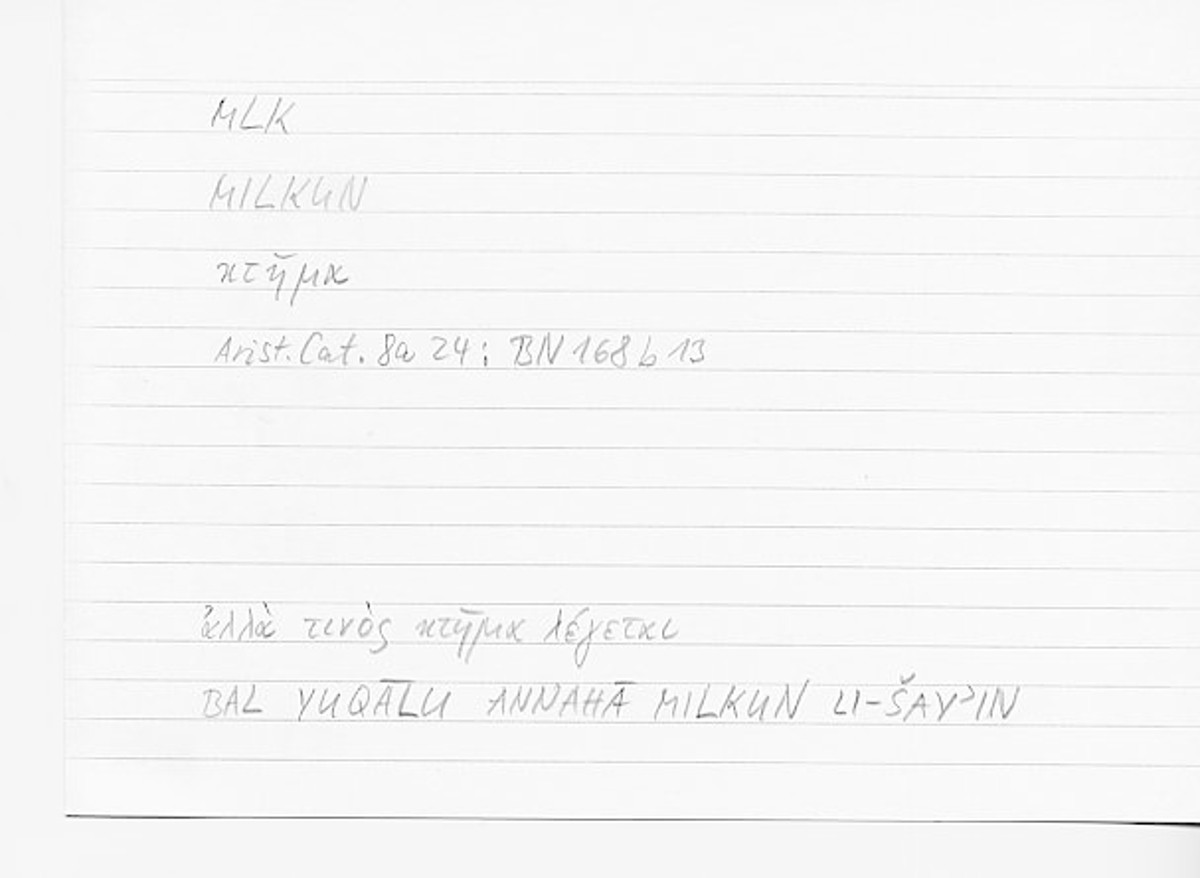 MLK
MILKUN
κτῆμα
Arist. Cat. 8a 24; BN 168 b 13
ἀλλὰ τινὸς κτῆμα λέγεται
BAL YUQĀLU ANNAHĀ MILKUN LI-ŠAYʾIN